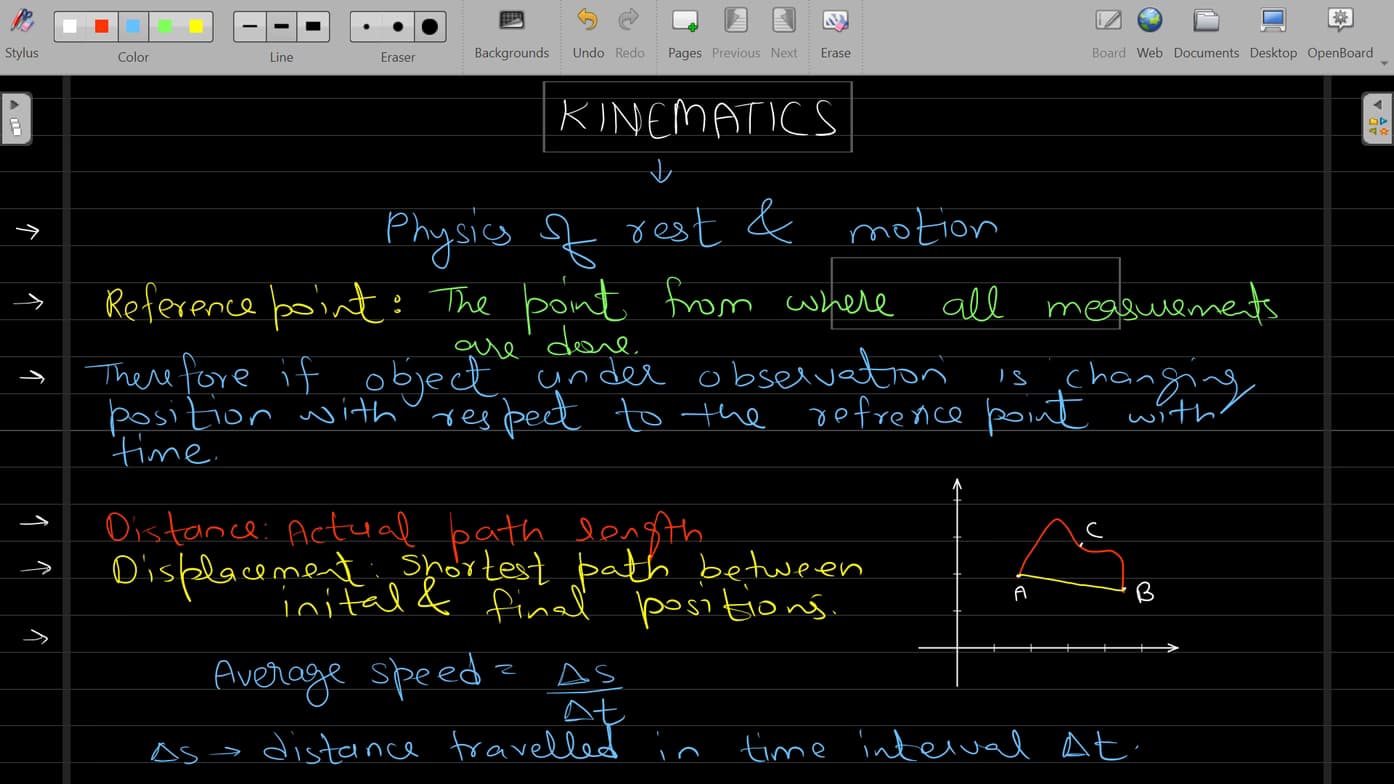 Stylus
Color
Line
Eraser
Backgrounds
Undo
Redo
Pages
Previous
Next
Erase
Board
Web
Documents
Desktop
OpenBoard
KINEMATICS
↓
→ Physics of rest & motion
→ Reference point: The point from where all measurements
are done.
→ Therefore if object under observation is changing
position with respect to the refrence point with
time.
→ Distance: Actual path length
→ Displacement: Shortest path between
inital & final positions.
→
C
A
B
Average speed = Δs
Δt
Δs → distance travelled in time interval Δt.